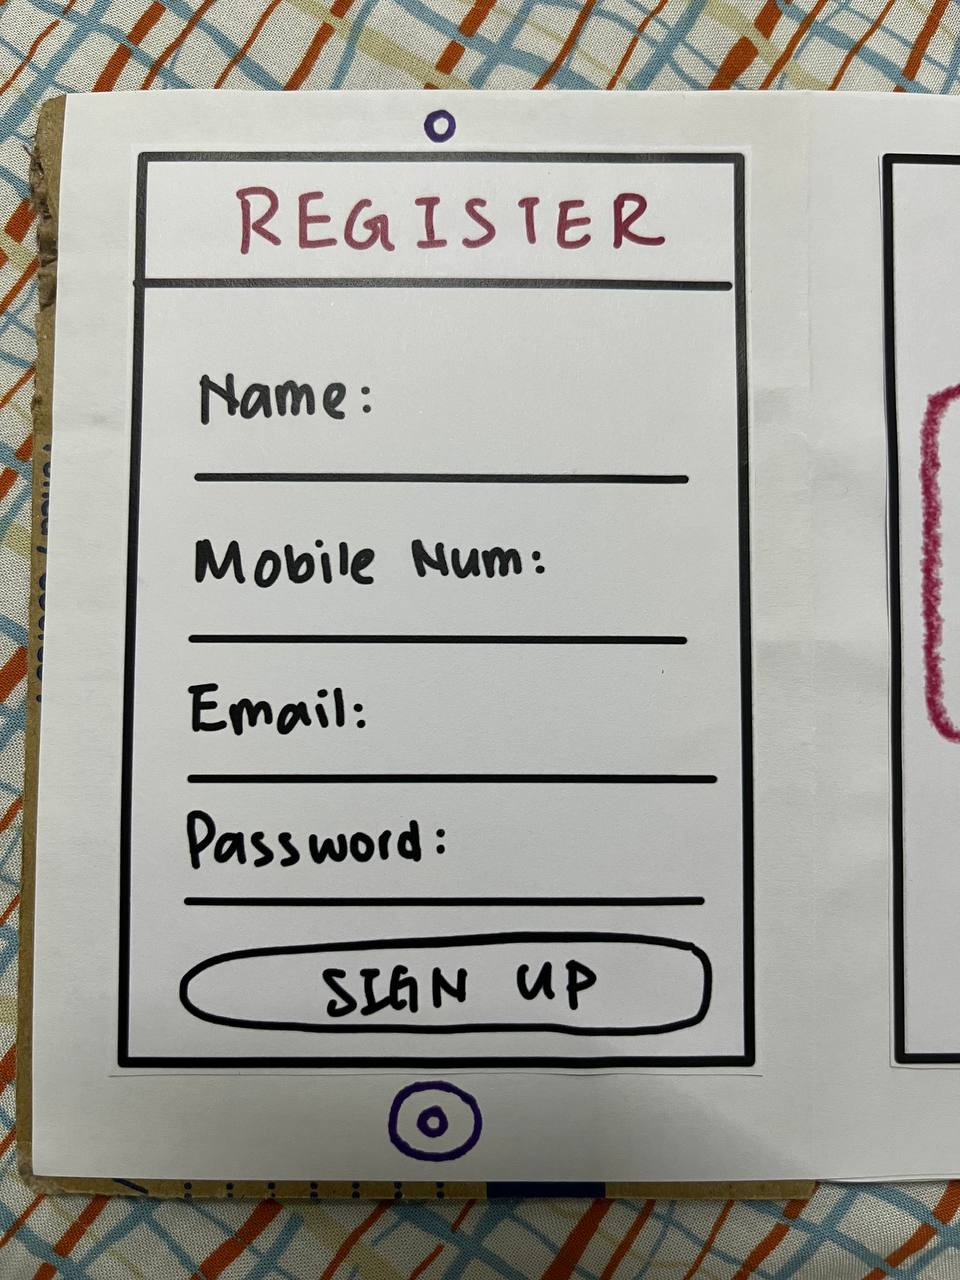 REGISTER
Name:
Mobile Num:
Email:
Password:
SIGN UP